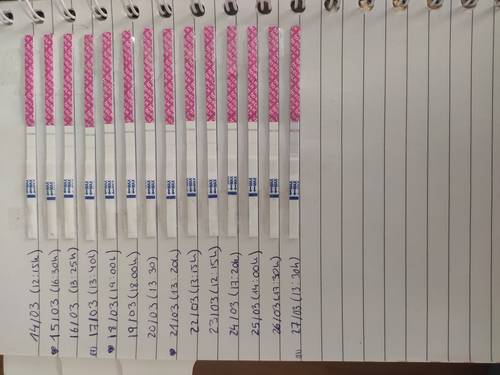 14/03 (12:15h)
15/03 (16:30h)
16/03 (13:25h)
17/03 (13:40h)
18/03 (19:00h)
19/03 (18:00h)
20/03 (13:30)
21/03 (13:20h)
22/03
23/03 (12:15h)
24/03 (17:20h)
25/03 (14:00h)
26/03 (17:30h)
27/03 (13:30h)